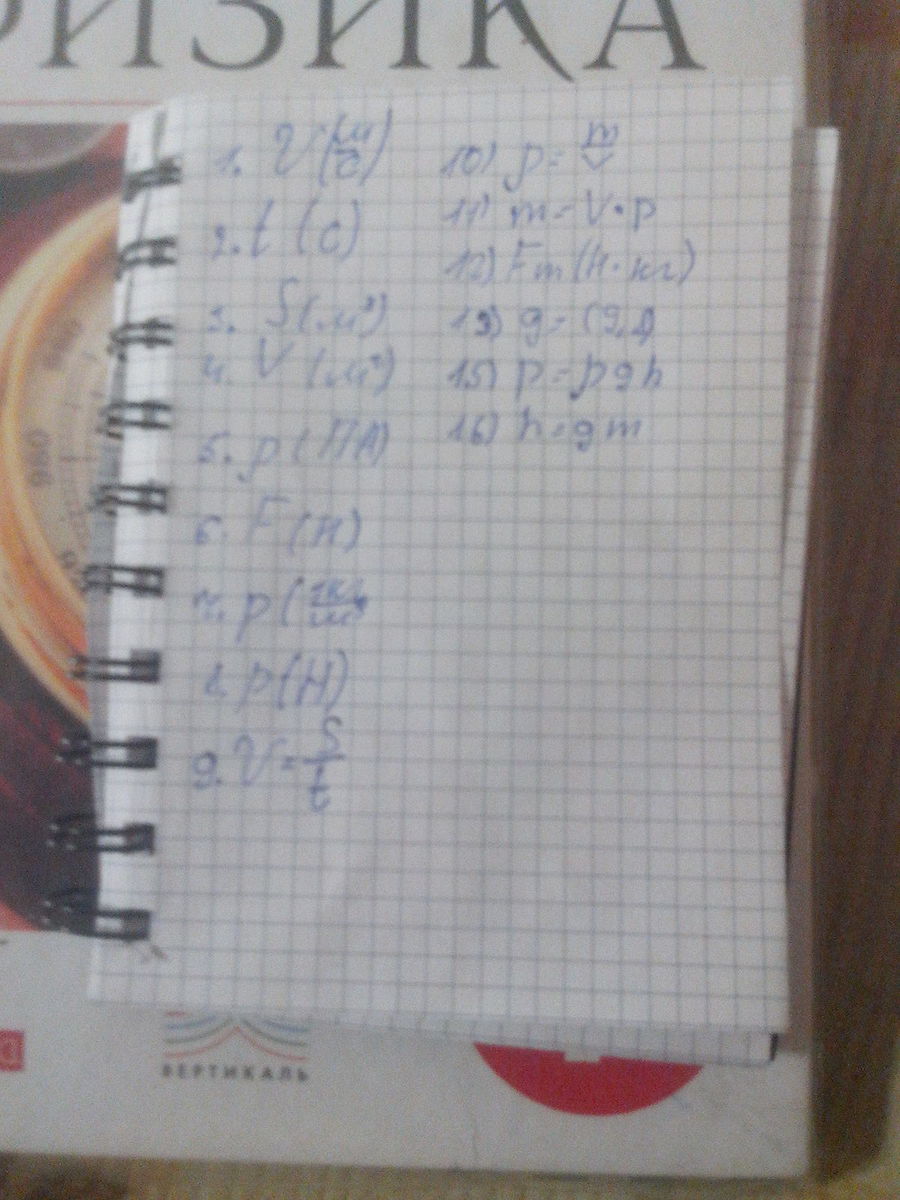 ФИЗИКА
1. V(м/с)
2. t (с)
3. S(м³)
4. V (м²)
5. p (ПА)
6. F (Н)
7. p (кг/м³
8. p(Н)
9. V = S/t
10) p = m/V
11) m = V·p
12) Fm (Н·кг)
13) g = (9,8)
15) p = pgh
16) h = gm
ВЕРТИКАЛЬ